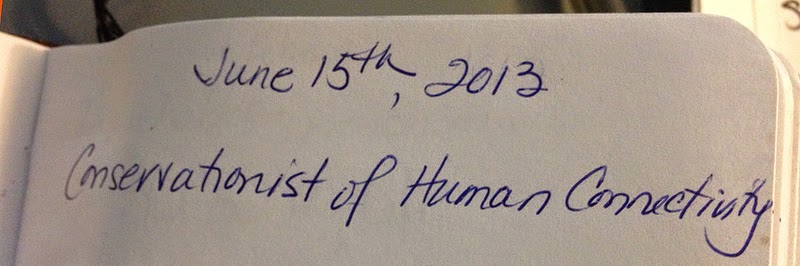 June 15th, 2013
Conservationist of Human Connectivity.